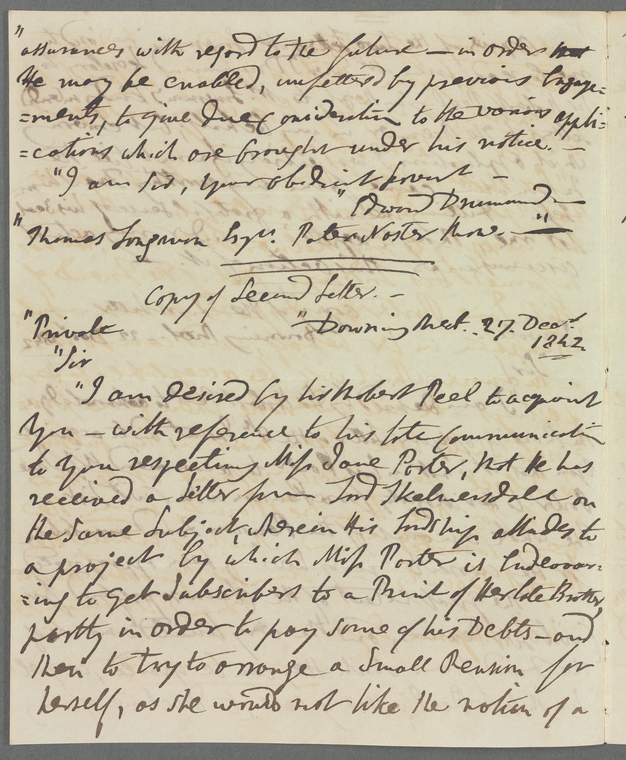 "assurances with regard to the future – in order that
He may be enabled, unfettered by previous Engage=
=ments, to give due Consideration to the various appli=
=cations which are brought under his notice. –
"I am Sir, your obedient Servant –
"Edward Drummond –
"Thomas Longman Esqre. Pater Noster Row. – "
Copy of Second Letter. –
"Private "Downing Street. 27. Decr.
1842.
"Sir
"I am desired by Sir Robert Peel to acquaint
You – with reference to his late Communication
to You respecting Miss Jane Porter, that He has
received a Letter from Lord Skelmersdale on
the Same Subject, wherein His Lordship alludes to
a project by which Miss Porter is Endeavor=
=ing to get Subscribers to a Print of Her late Brother,
partly in order to pay Some of his Debts – and
then to try to arrange a Small Pension for
herself, as she would not like the notion of a